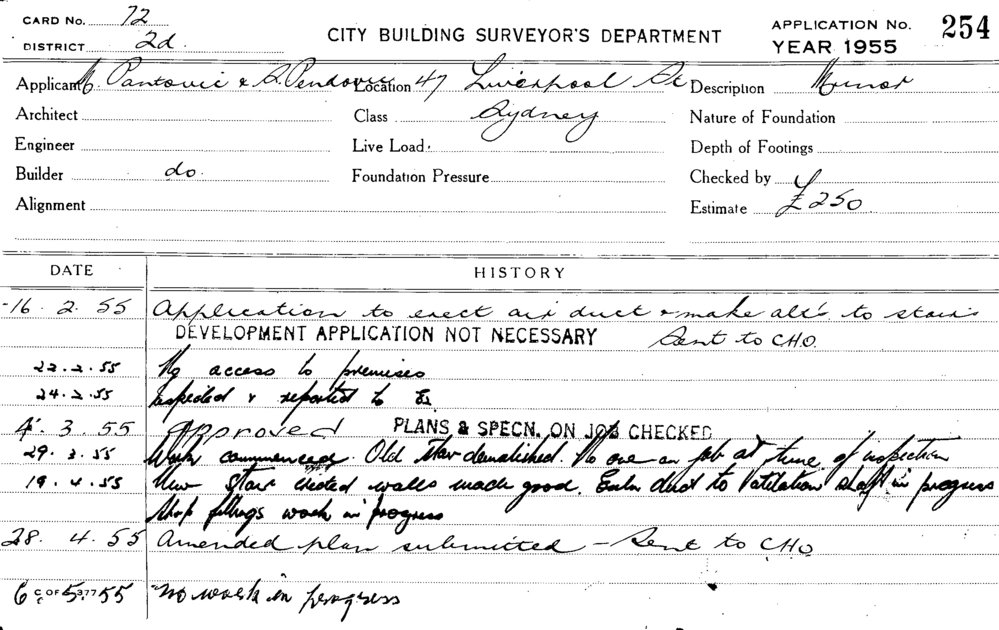 CARD No. 72
DISTRICT 2d.
CITY BUILDING SURVEYOR'S DEPARTMENT
APPLICATION No. 254
YEAR 1955
Applicant M. Pantovic & S. Pendovic Location 47 Liverpool St Description Minor
Architect Class Sydney Nature of Foundation
Engineer Live Load. Depth of Footings
Builder do. Foundation Pressure Checked by
Alignment Estimate £250
DATE HISTORY
16.2.55 Application to erect air duct & make alt's to stairs
DEVELOPMENT APPLICATION NOT NECESSARY Sent to CHO.
22.2.55 No access to premises
24.2.55 Inspected & reported to
4.3.55 Approved PLANS & SPECN. ON JOB CHECKED
29.3.55 Work commenced. Old stair demolished. No one on job at time of inspection
19.4.55 New stair erected walls made good. duct to shaft in progress
Shop fittings work in progress
28.4.55 Amended plan submitted - Sent to CHO
6 C OF S 377 55 No work in progress